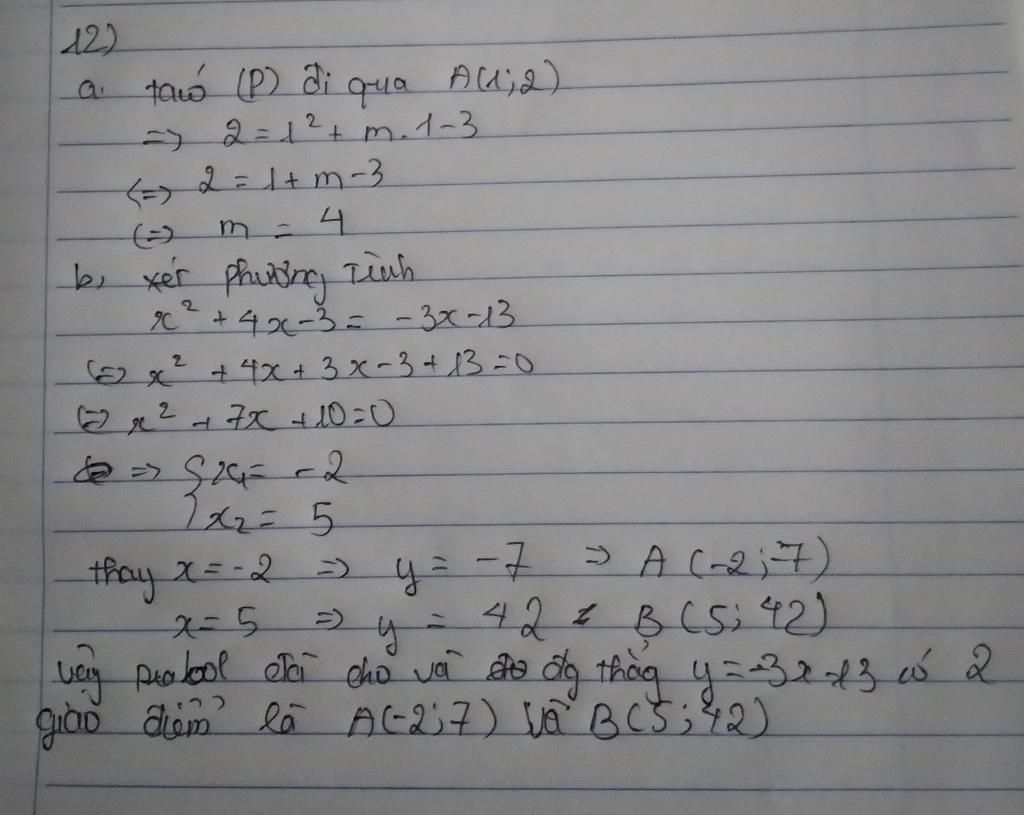 12)
a. ta có (P) đi qua A(1;2)
=> 2 = 1² + m.1-3
<=> 2 = 1 + m - 3
<=> m = 4
b, xét phương trình
x² + 4x - 3 = -3x - 13
<=> x² + 4x + 3x - 3 + 13 = 0
<=> x² + 7x + 10 = 0
=> { x₁ = -2
x₂ = 5
thay x = -2 => y = -7 => A (-2;-7)
x = 5 => y = 42 B (5; 42)
vậy parabol đã cho và đg thẳng y = -3x - 13 có 2
giao điểm là A(-2;7) và B(5; 42)